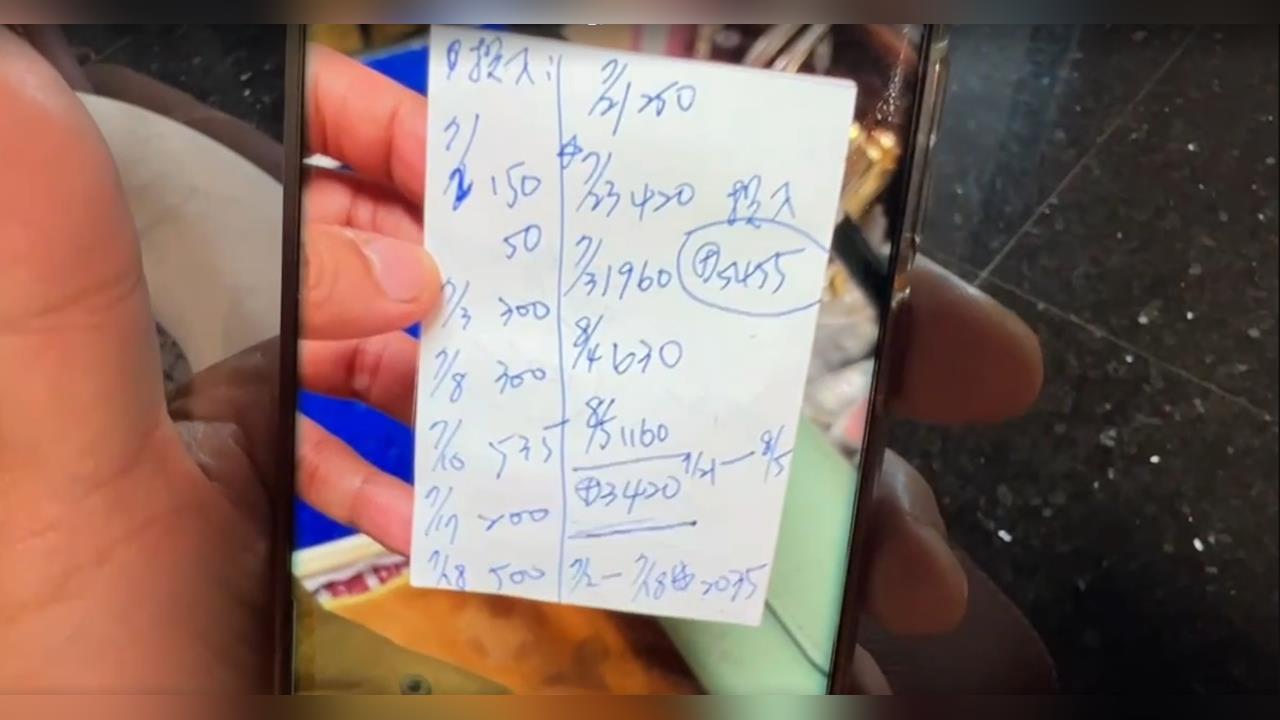 投入:
7/2 150
50
7/3 300
7/8 300
7/10 535
7/17 200
7/18 500
7/21 250
⊕ 7/23 420
7/31 960
8/4 630
8/5 1160
⊕3420 7/21—8/5
7/2—7/18⊕2035
投入
⊕5455